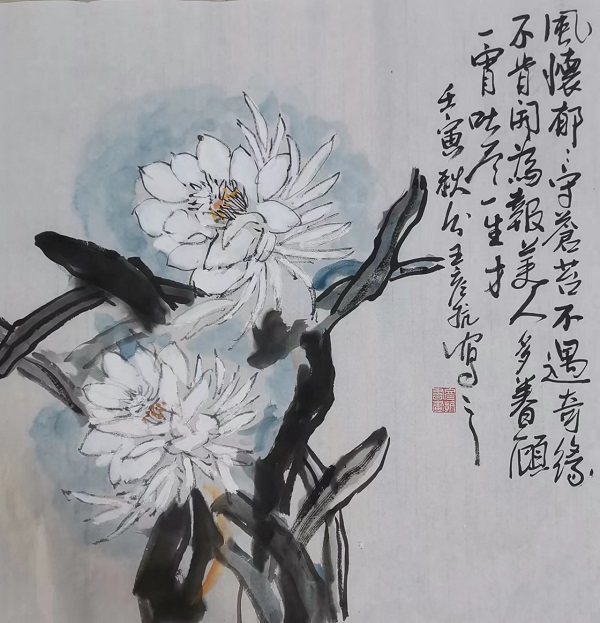 風懷郁〻守蒼苔不遇奇緣
不肯開為報美人多眷顧
一宵吐尽一生才
壬寅秋月王彦航寫之